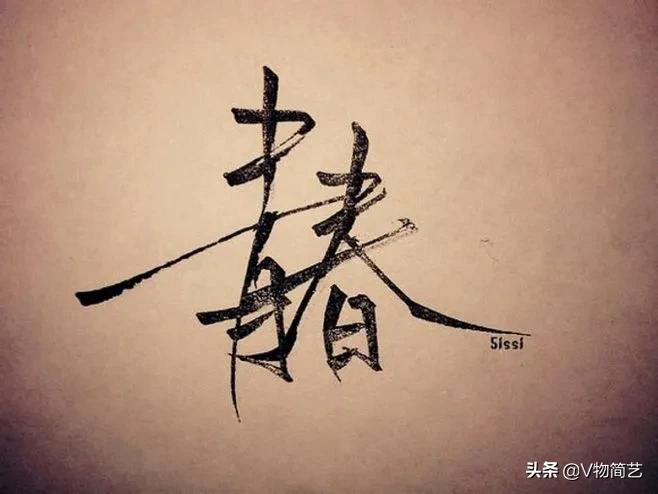 青春
5issi
头条 @V物简艺